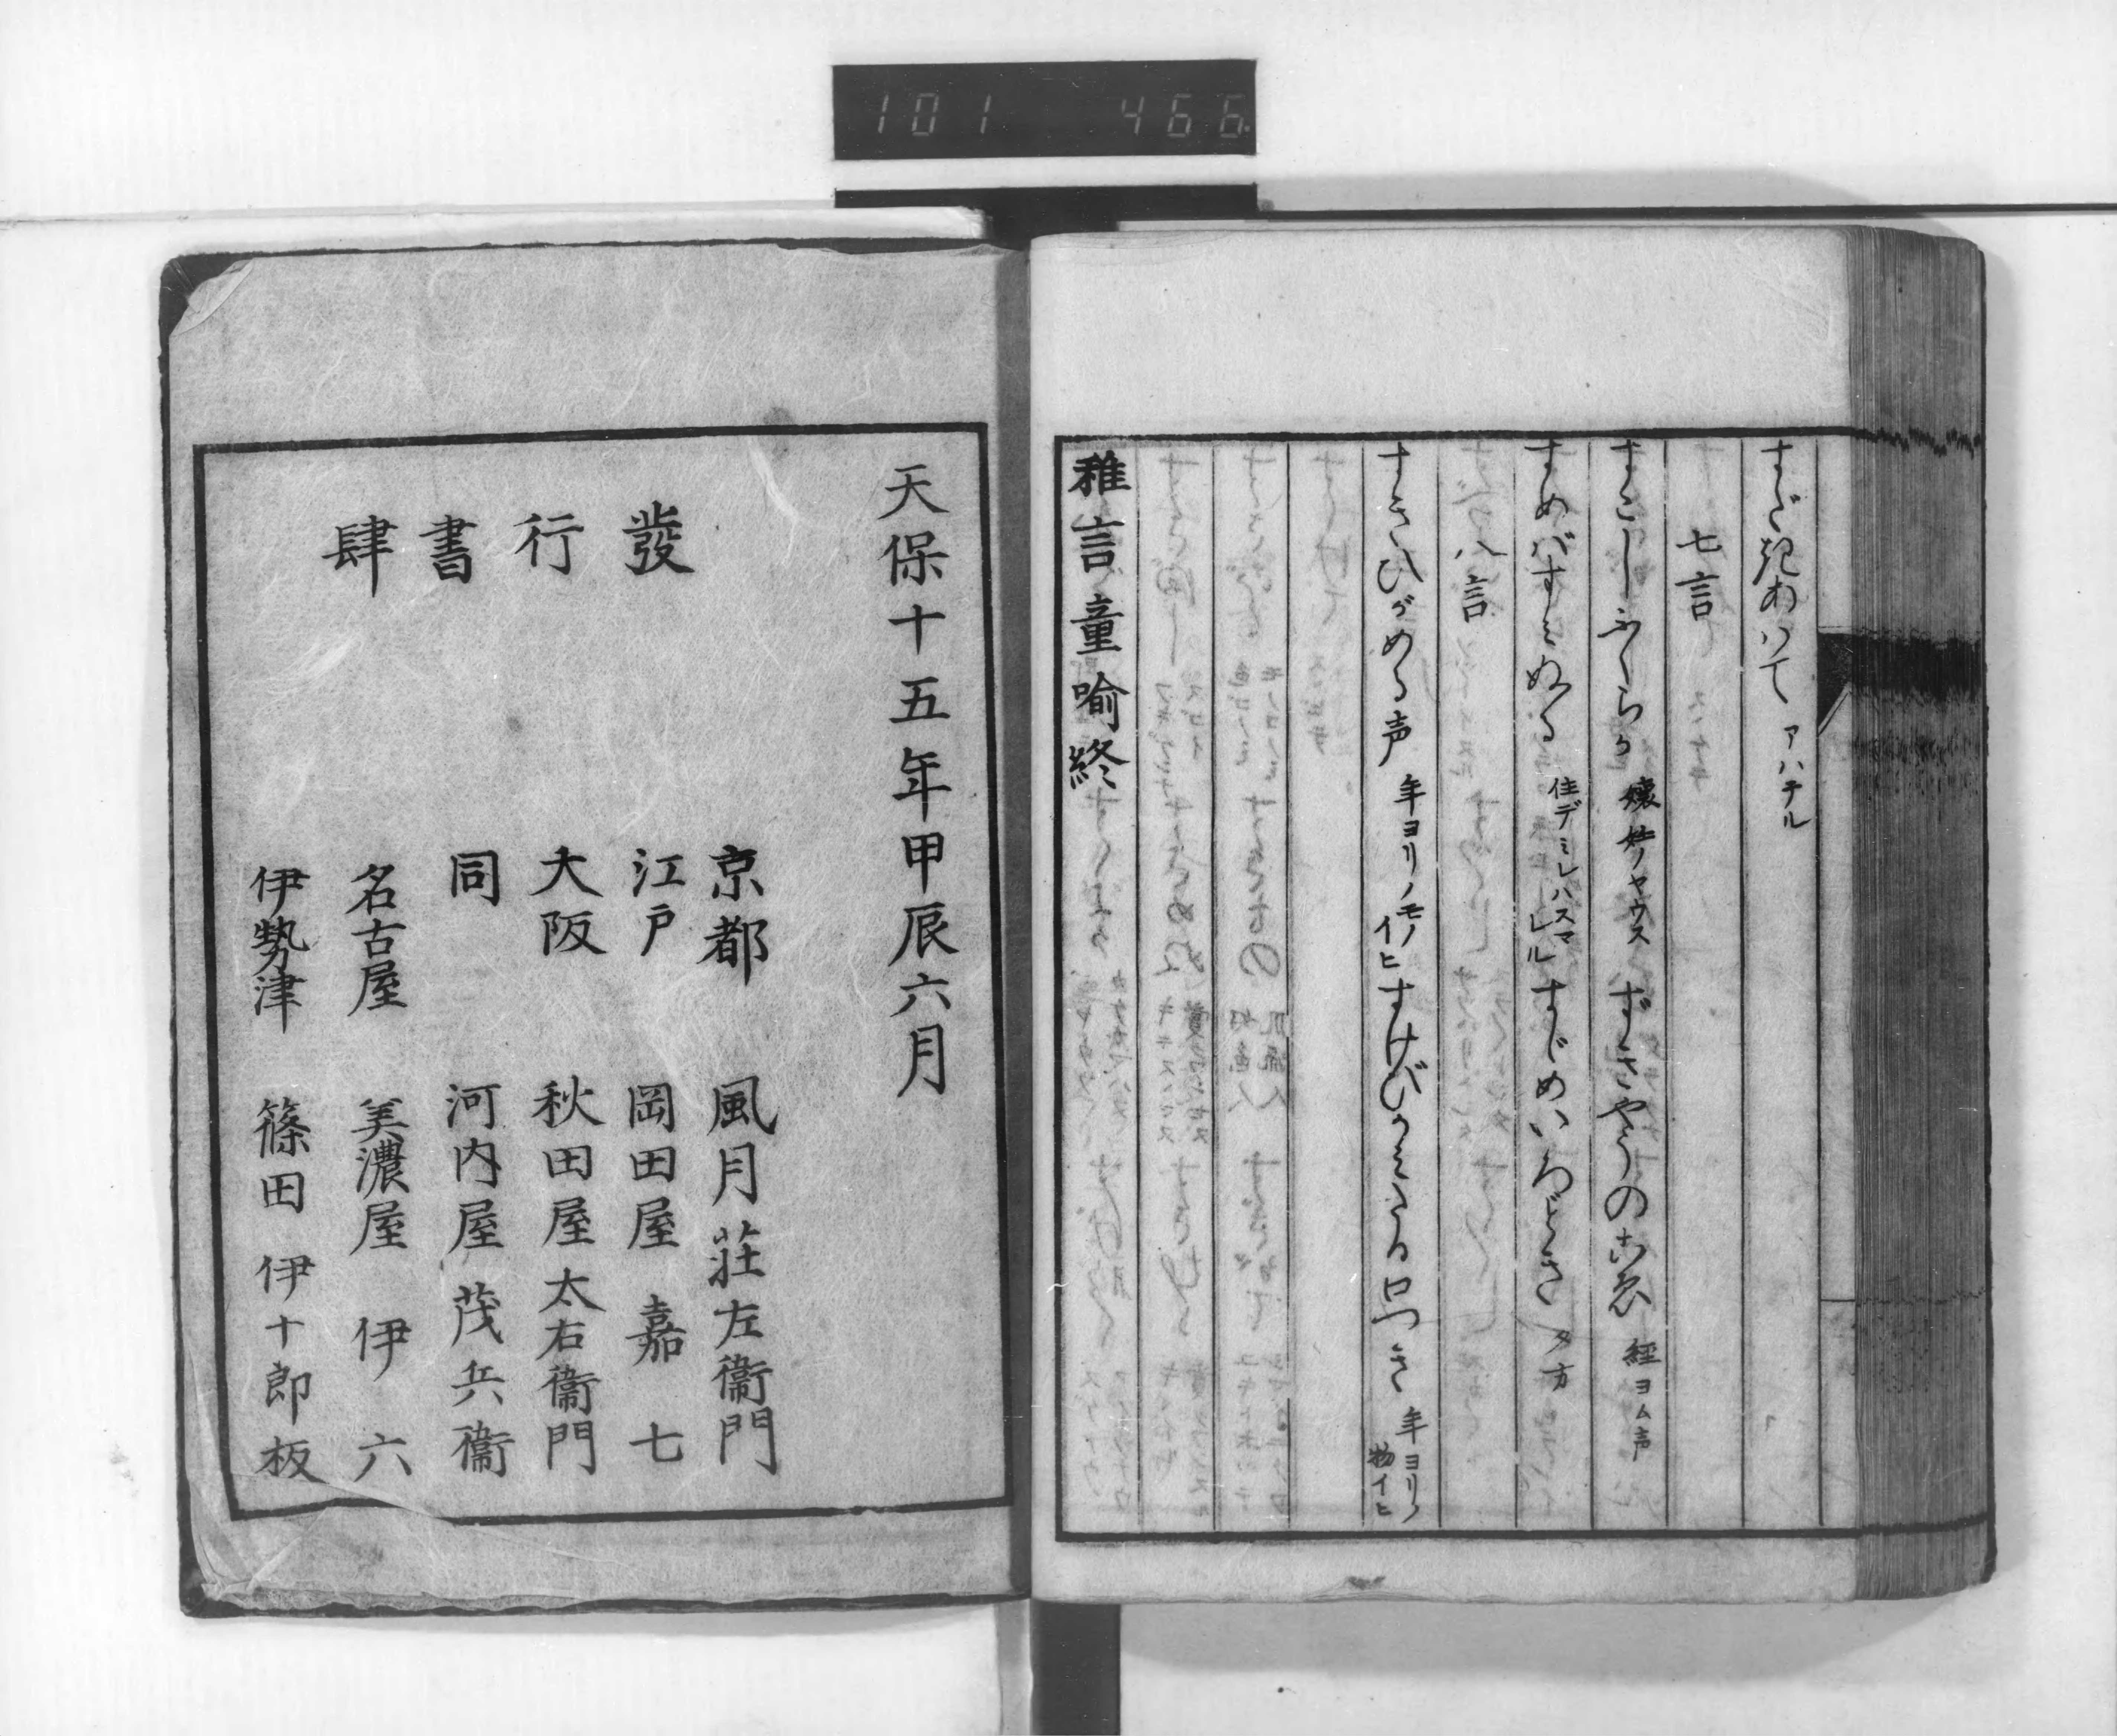 101 466
アハテル
七言
すこしふくらか 懐妊ノヤウス ずきやうのこゑ 経ヨム声
すめばすみぬる 住デミレハスマレル すゞめいろどき 夕方
八言
すきひがめる声 年ヨリノモノイヒ 口つき 年ヨリノ物イヒ
雅言童喩終
天保十五年甲辰六月
發行書肆
京都 風月莊左衞門
江戸 岡田屋嘉七
大阪 秋田屋太右衞門
同 河内屋茂兵衞
名古屋 美濃屋伊六
伊勢津 篠田伊十郎板